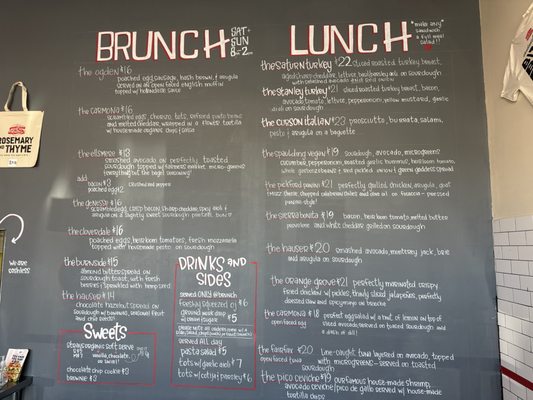 BRUNCH SAT + SUN 8-2
the ogden $16
poached egg, sausage, hash brown, & arugula
served as an open faced english muffin
topped with hollandaise sauce
the carmona $16
scrambled eggs, chorizo, tots, refried pinto beans
and melted cheddar wrapped in a flour tortilla
with housemade salsa
the ellsmere $13
smashed avocado on perfectly toasted
sourdough topped with farmers market, microgreens
everything but the bagel seasoning
add
bacon $3
poached egg $2
the denesse $16
scrambled egg, crisp bacon, sharp cheddar, spicy aioli &
arugula on a slightly sweet sourdough
the cloverdale $16
poached eggs, heirloom tomatoes, fresh mozzarella
topped with homemade pesto on sourdough
the burnside $15
almond butter spread on
sourdough toast, with fresh
berries & sprinkled with hemp seed
the hauser $14
chocolate hazelnut spread on
sourdough with bananas, seasonal fruit
and chia seeds
Sweets
straus organic soft serve
vanilla, chocolate,
or swirl
chocolate chip cookie $3
brownie $3
DRINKS AND SIDES
served ONLY @ brunch
freshly squeezed oj $6
ground work drip $5
w/ cream & sugar
served ALL DAY
pasta salad $5
tots w/ garlic aioli $7
tots w/ cotija & parsley $6
LUNCH
"make any" sandwich
a full meal
salad!!
the saturn turkey $22 sliced roasted turkey breast,
aged sharp cheddar, lettuce, basil/parsley aioli on sourdough
with smashed avocado and red onion
the stanley turkey $21 sliced roasted turkey breast, bacon,
avocado, tomato, lettuce, pepperoncini, yellow mustard, garlic
aioli on sourdough
the curson italian $23 prosciutto, burrata, salami,
pesto & arugula on a baguette
the spaulding vegan $19 sourdough, avocado, microgreens
cucumber, pepperoncini, roasted garlic hummus, heirloom tomato,
white onion & pickled onion & green goddess spread
the pickford panini $21 perfectly grilled chicken, arugula, goat
cheese, chopped calabrian chilies and olive oil on focaccia - pressed
panini-style!
the sierra bonita $19 bacon, heirloom tomato, melted butter
provolone, and white cheddar grilled on sourdough
the hauser $20 smashed avocado, monterey jack, brie
and arugula on sourdough
the orange grove $21 perfectly marinated crispy
fried chicken w/ pickles, thinly sliced jalapeños, perfectly
dressed slaw and spicy mayo on brioche
the carmona $18 perfect egg salad w/ a hint of lemon on top of
open faced egg sliced avocado, served on toasted sourdough
and a dash of dill!
the fairfax $20 line-caught tuna layered on avocado, topped
open faced tuna with microgreens - served on toasted
sourdough
the pico ceviche $19 our famous house-made shrimp,
avocado ceviche/pico de gallo served w/ house-made
tortilla chips
ROSEMARY
AND THYME
we are
cashless